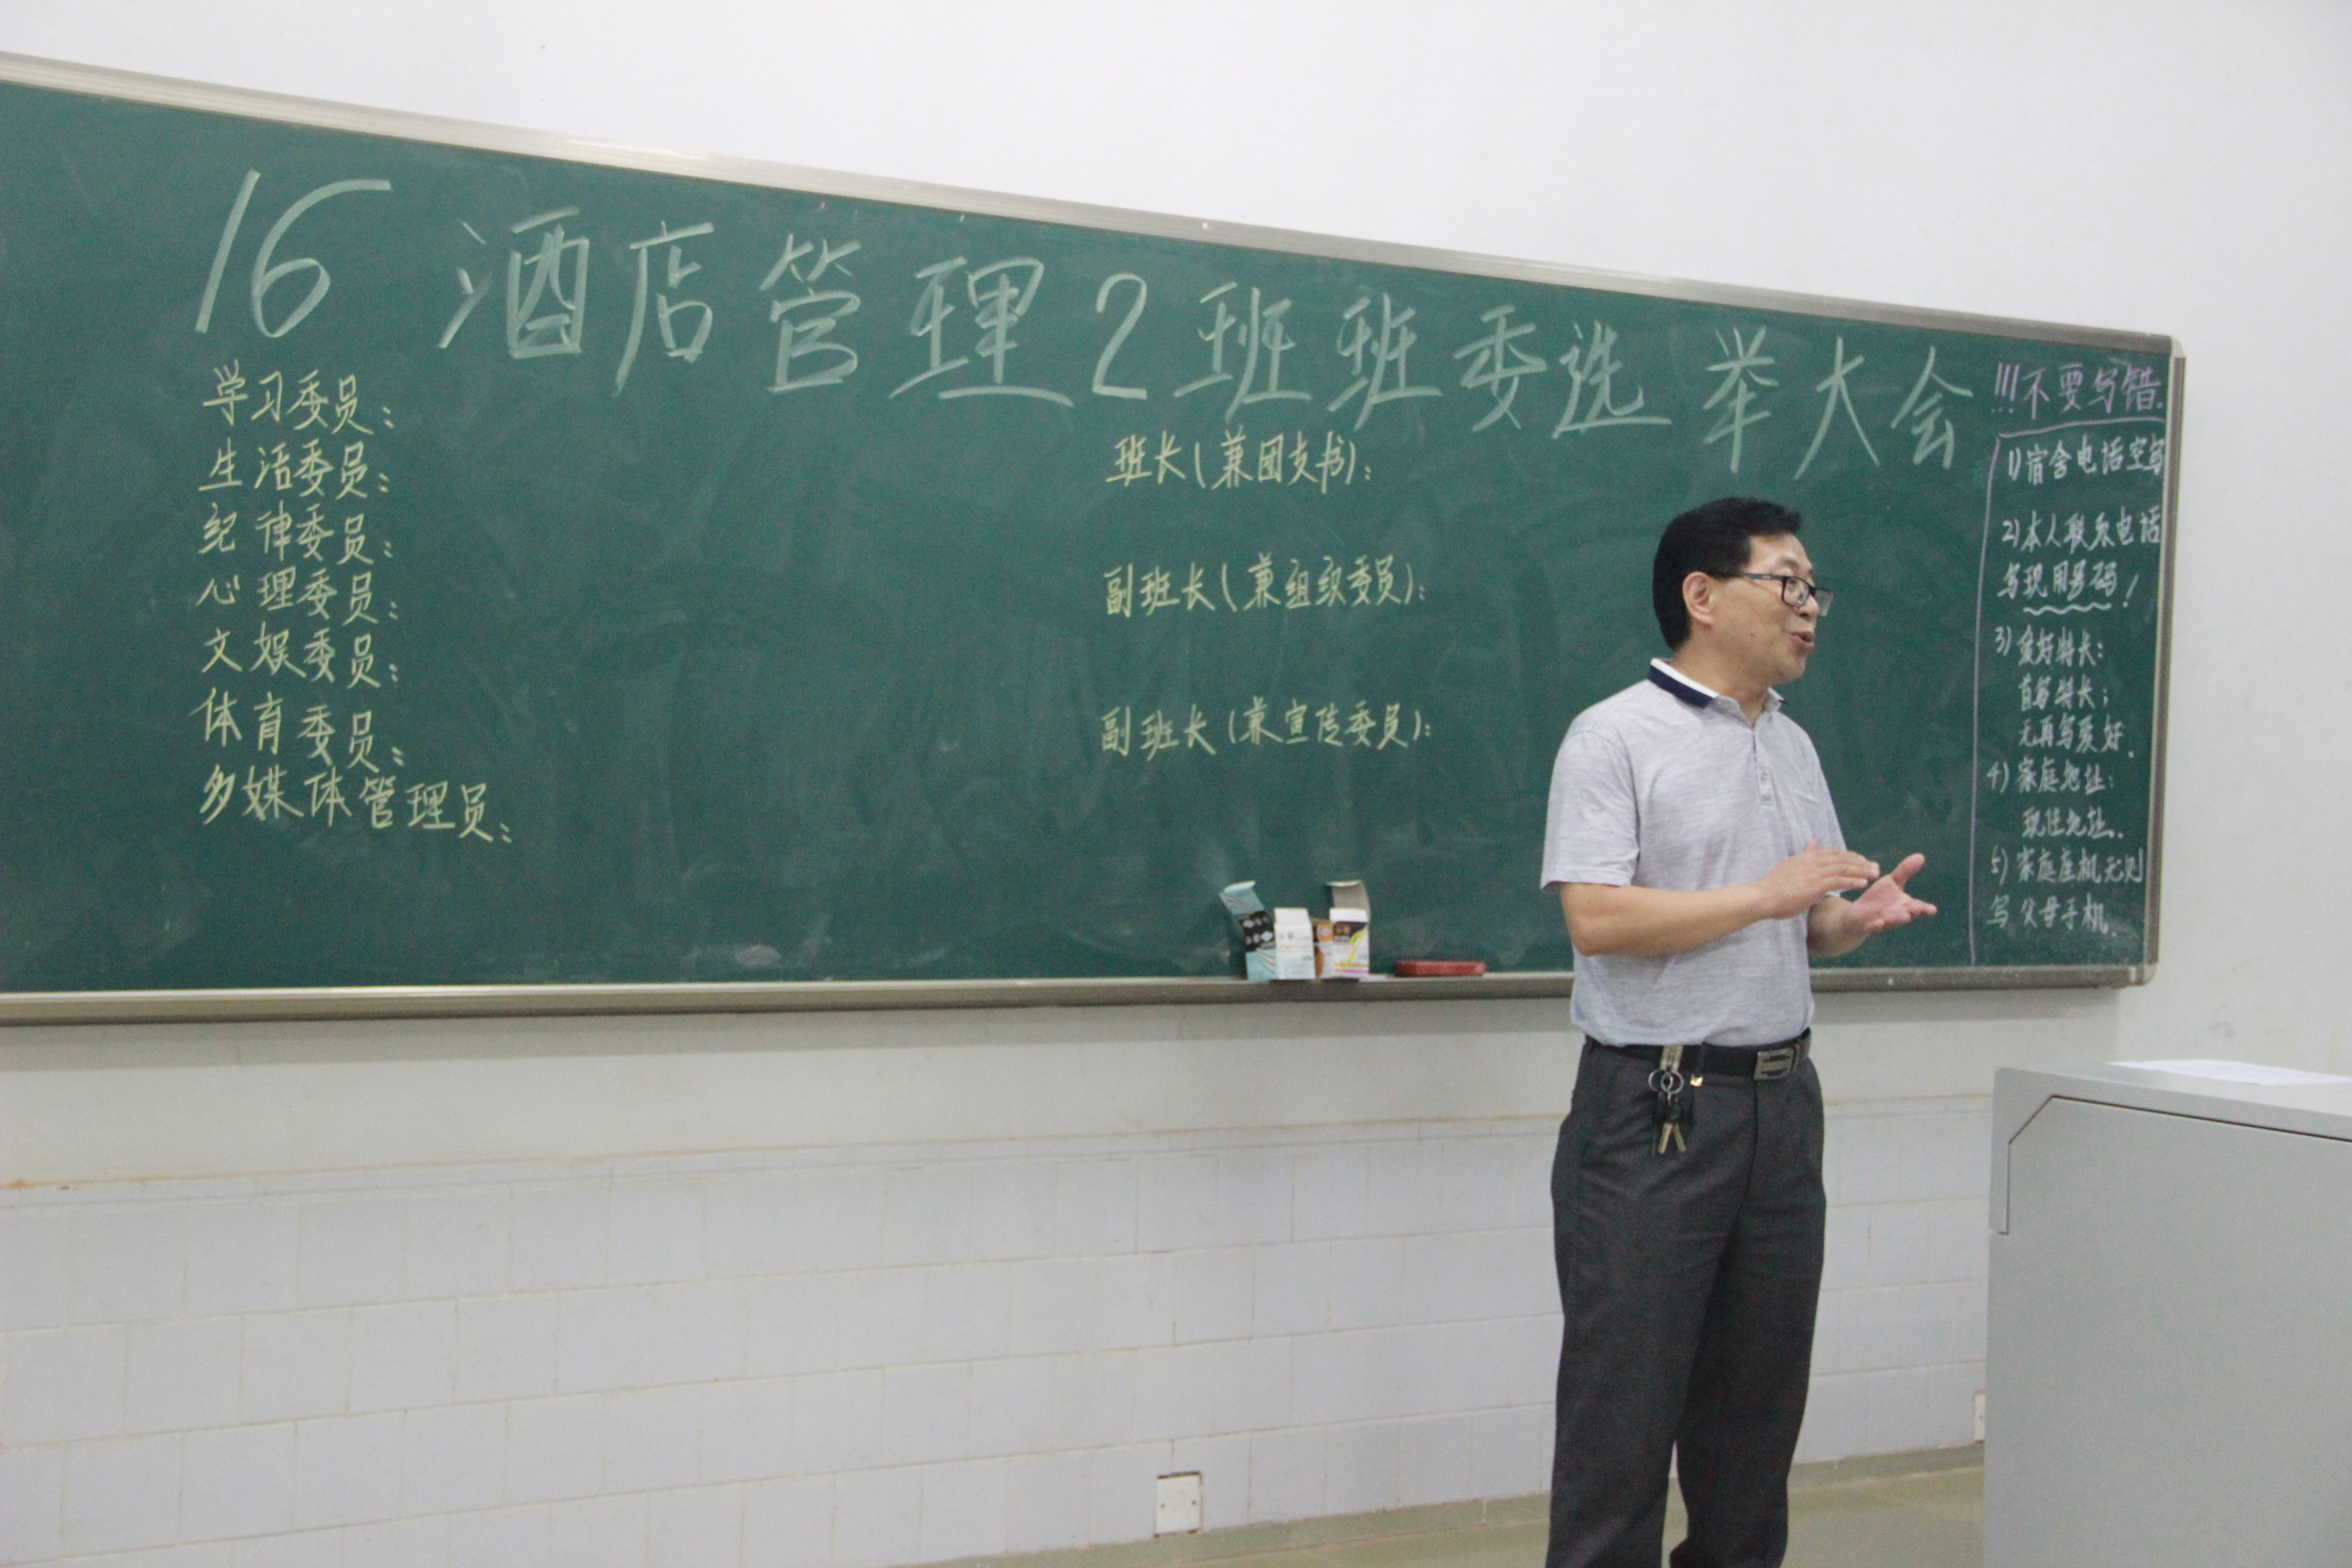 16 酒店管理2班班委选举大会
学习委员:
生活委员:
纪律委员:
心理委员:
文娱委员:
体育委员:
多媒体管理员:
班长(兼团支书):
副班长(兼组织委员):
副班长(兼宣传委员):
!!!不要写错.
1)宿舍电话空写
2)本人联系电话
写现用号码!
3)爱好特长:
首写特长;
无再写爱好.
4)家庭地址:
现住地址.
5)家庭座机无则
写父母手机.